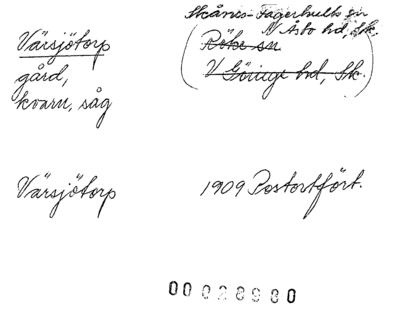 Skånes-Fagerhults sn
N Åsbo hd, Sk.
Värsjötorp
(Röke sn
V Göinge hd, Sk.)
gård,
kvarn, såg
Värsjötorp 1909 Postortfört.
00028980